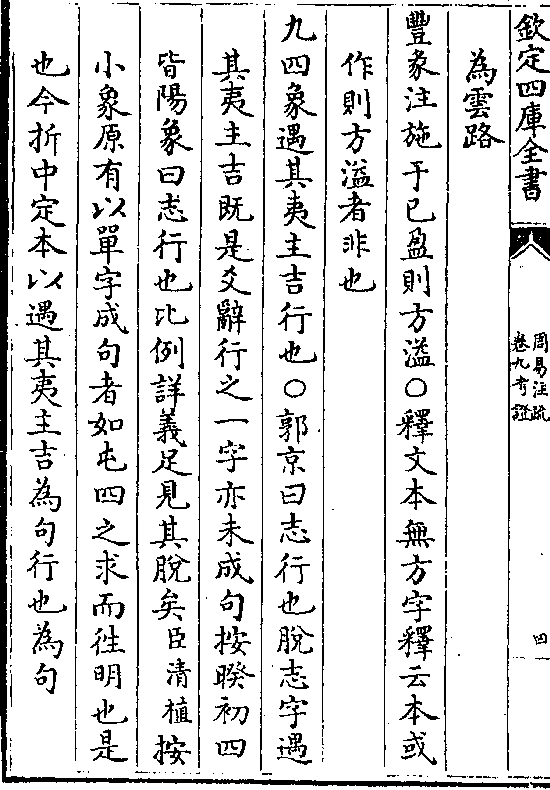 欽定四庫全書
周易注疏
卷九考證
四
為雲路
豐象注施于已盈則方溢○釋文本無方字釋云本或
作則方溢者非也
九四象遇其夷主吉行也○郭京曰志行也脫志字遇
其夷主吉既是爻辭行之一字亦未成句按睽初四
皆陽象曰志行也比例詳義足見其脫矣臣清植按
小象原有以單字成句者如屯四之求而徃明也是
也今折中定本以遇其夷主吉為句行也為句